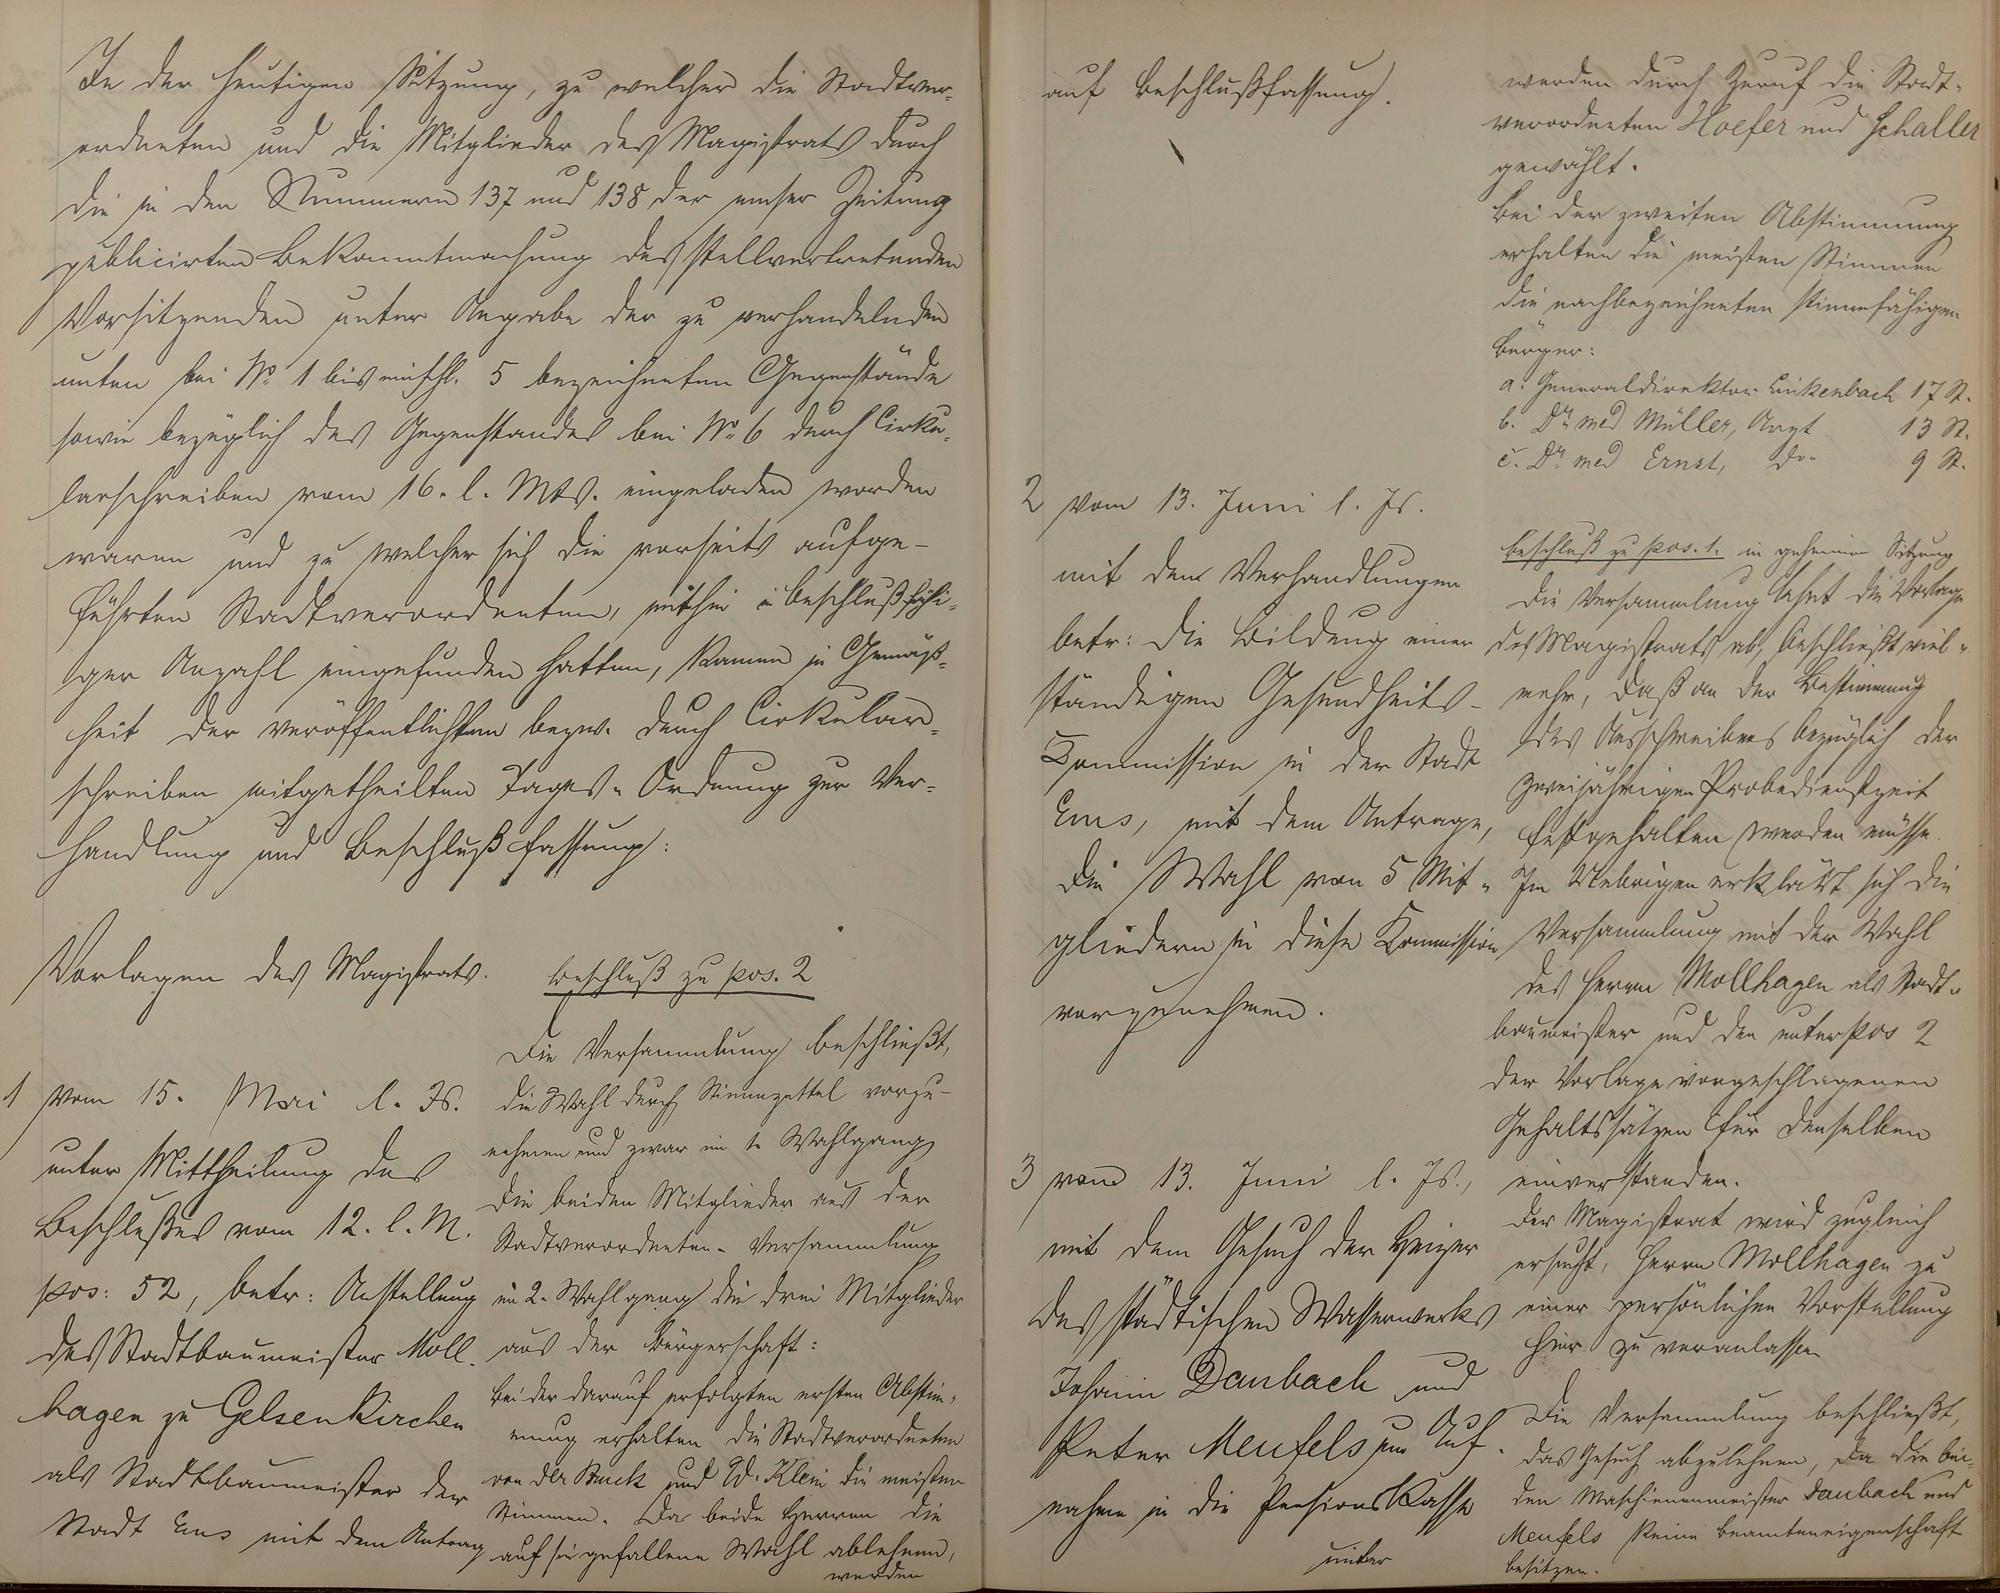 In der heutigen Sitzung, zu welcher die Stadtver-
ordneten und die Mitglieder des Magistrats durch
die in den Nummern 137 und 138 der emser Zeitung
publicirten Bekanntmachung des stellvertretenden
Vorsitzenden unter Angabe der zu verhandelnden
unten bei No 1 bis einschl. 5 bezeichneten Gegenstände
sowie bezüglich des Gegenstandes bei No 6 durch Cirku-
larschreiben vom 16. l. Mts. eingeladen worden
waren und zu welcher sich die vorseits aufge-
führten Stadtverordneten, mithin in beschlußfähi-
ger Anzahl eingefunden hatten, kamen in Gemäß-
heit der veröffentlichten bezw. durch Cirkular-
schreiben mitgetheilten Tages-Ordnung zur Ver-
handlung und Beschlußfassung:
Vorlagen des Magistrats.
1 vom 15. Mai l. Js.
unter Mittheilung des
Beschlußes vom 12. l. M.
pos: 52, betr: Anstellung
des Stadtbaumeister Moll-
hagen zu Gelsenkirchen
als Stadtbaumeister der
Stadt Ems mit dem Antrag
Beschluß zu pos. 2
Die Versammlung beschließt,
die Wahl durch Stimmzettel vorzu-
nehmen und zwar im 1. Wahlgang
die beiden Mitglieder aus der
Stadtverordneten-Versammlung
im 2. Wahlgang die drei Mitglieder
aus der Bürgerschaft:
Bei der darauf erfolgten ersten Abstim-
mung erhalten die Stadtverordneten
von der Burck und W. Klein die meisten
Stimmen. Da beide Herren die
auf sie gefallene Wahl ablehnen,
werden
auf Beschlußfassung.
2 vom 13. Juni l. Js.
mit den Verhandlungen
betr: die Bildung einer
ständigen Gesundheits-
Commission in der Stadt
Ems, mit dem Antrage,
die Wahl von 5 Mit-
gliedern in diese Commission
vorzunehmen.
3 vom 13. Juni l. Js.,
mit dem Gesuch der Heizer
des städtischen Wasserwerks
Johann Daubach und
Peter Meufels um Auf-
nahme in die Pensionskasse
unter
werden durch Zuruf die Stadt-
verordneten Hoefer und Schaller
gewählt.
Bei der zweiten Abstimmung
erhalten die meisten Stimmen
die nachbezeichneten stimmfähigen
Bürger:
a. Generaldirektor Linkenbach 17 St.
b. Dr med Müller, Arzt 13 St.
c. Dr med Ernst, do- 9 St.
Beschluß zu pos. 1. in geheimer Sitzung
Die Versammlung lehnt die Vorlage
des Magistrats ab, beschließt viel-
mehr, daß an der Bestimmung
des Ausschreibens bezüglich der
zweijährigen Probedienstzeit
festgehalten werden müsse.
Im Uebrigen erklärt sich die
Versammlung mit der Wahl
des Herrn Mollhagen als Stadt-
baumeister und den unter pos 2
der Vorlage vorgeschlagenen
Gehaltssätzen für denselben
einverstanden.
Der Magistrat wird zugleich
ersucht, Herrn Mollhagen zu
einer persönlichen Vorstellung
hier zu veranlassen
Die Versammlung beschließt,
das Gesuch abzulehnen, da die bei-
den Maschienenmeister Daubach und
Meufels keine Beamteneigenschaft
besitzen.